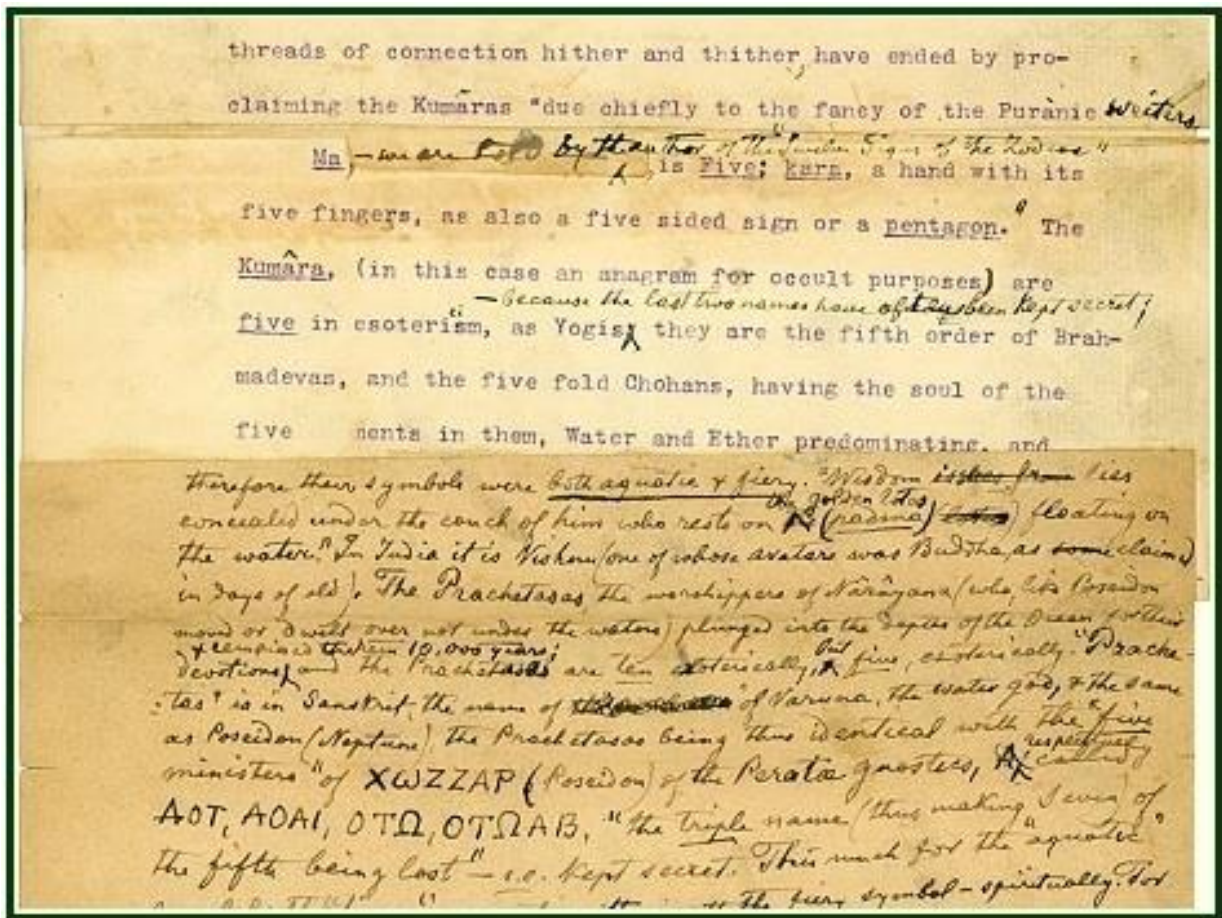 threads of connection hither and thither, have ended by pro-
claiming the Kumâras "due chiefly to the fancy of the Purànic writers
Ma, - we are told by the author of the "Twelve Signs of the Zodiac"
is Five; kara, a hand with its
five fingers, as also a five sided sign or a pentagon." The
Kumâra, (in this case an anagram for occult purposes) are
- because the last two names have often been kept secret;
five in esoterism, as Yogis, they are the fifth order of Brah-
madevas, and the five fold Chohans, having the soul of the
five ments in them, Water and Ether predominating, and
therefore their symbols were both aquatic & fiery. "Wisdom issues from lies
the golden lotos
concealed under the couch of him who rests on (padma) floating on
the water." In India it is Vishnu (one of whose avatars was Buddha, as some claimed
in days of old). The Prachetasas, the worshippers of Nârâyana (who, like Poseidon
moved or dwelt over not under the waters) plunged into the depths of the Ocean for their
& remained therein 10,000 years;
devotions, and the Prachetasas are ten exoterically, but five, esoterically. "Prache-
tas" is in Sanskrit, the name of of Varuna, the water god, & the same
as Poseidon (Neptune) the Prachetasas being thus identical with the "five
respectively
ministers" of ΧΩΖΖΑΡ (Poseidon) of the Peratæ gnostics, called
ΑΟΤ, ΑΟΑΙ, ΟΤΩ, ΟΤΩΑΒ, "the triple name (thus making seven) of
the fifth being lost" - i.e. kept secret. This much for the "aquatic"
the fiery symbol - spiritually. For